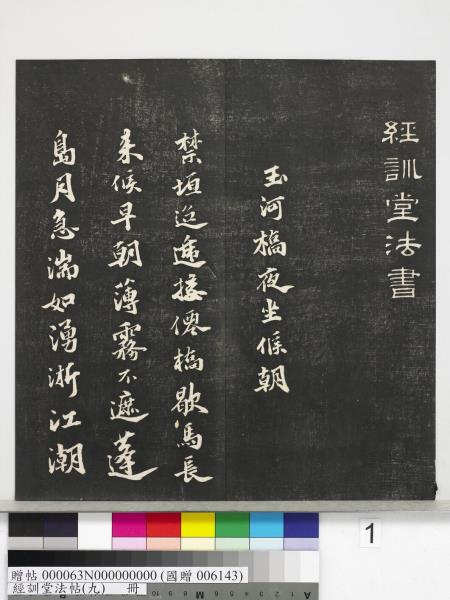 經訓堂法書
玉河橋夜坐候朝
禁垣迢遞接僊橋歇馬長
來候早朝薄霧不遮蓬
島月急湍如湧浙江潮
1
贈帖 000063N000000000 (國贈 006143)
經訓堂法帖(九) 冊